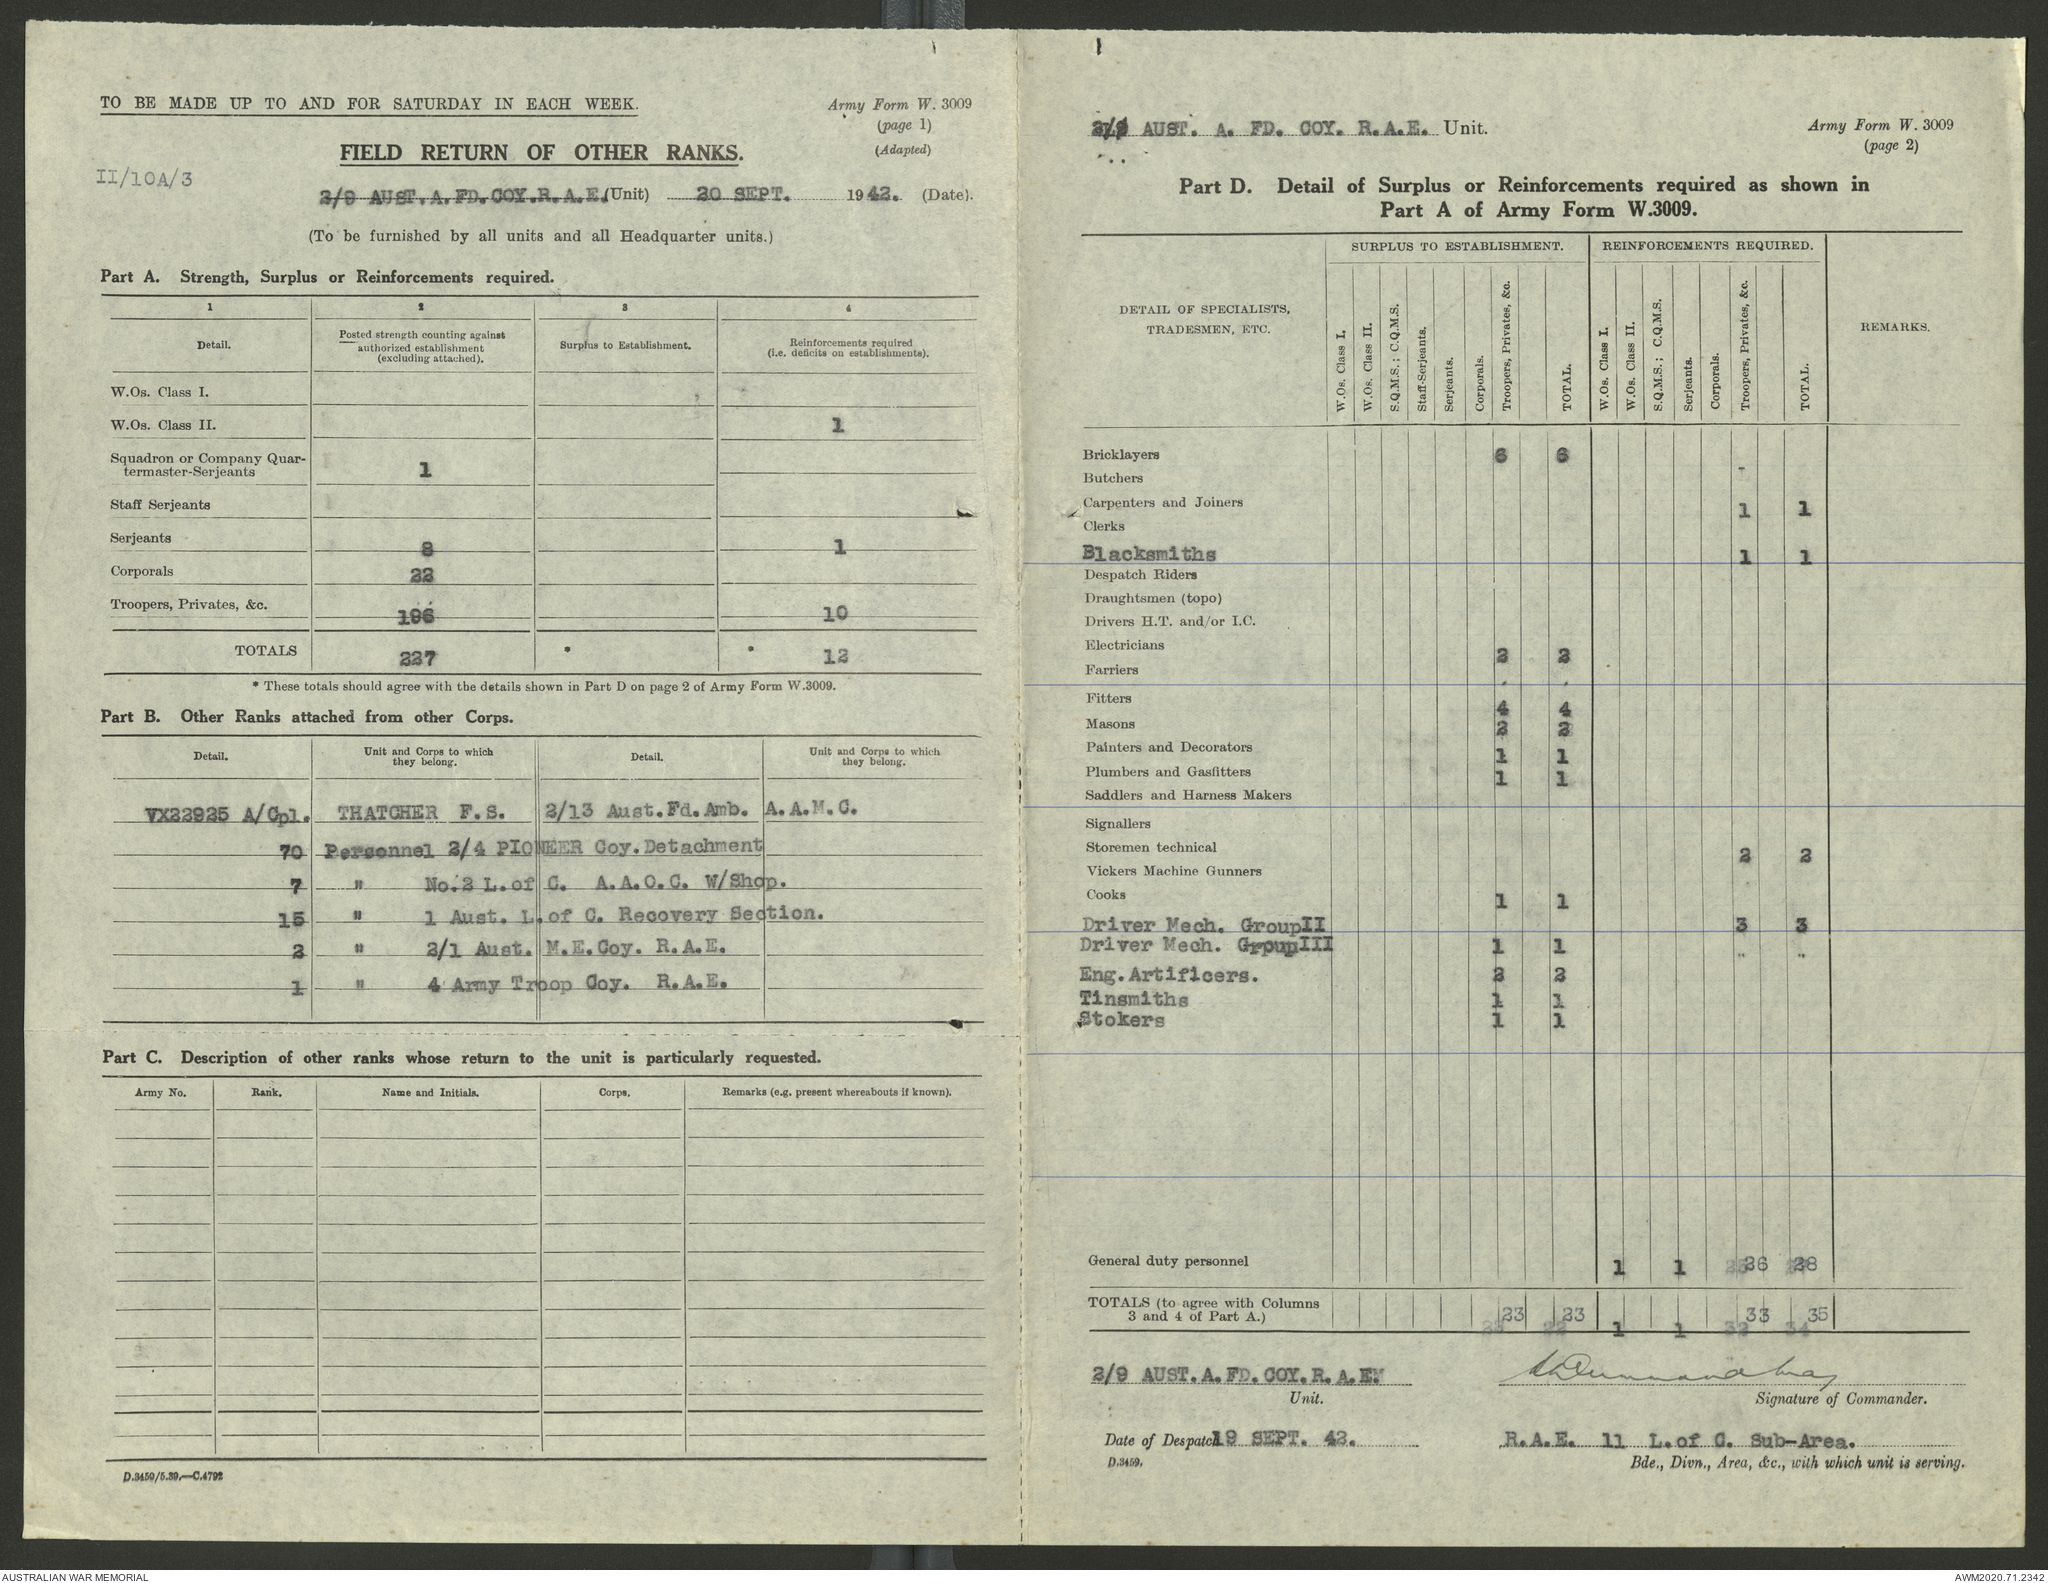 TO BE MADE UP TO AND FOR SATURDAY IN EACH WEEK.
Army Form W. 3009
(page 1)
(Adapted)
FIELD RETURN OF OTHER RANKS.
II/10A/3
2/9 AUST.A.FD.COY.R.A.E.(Unit) 20 SEPT. 1942. (Date).
(To be furnished by all units and all Headquarter units.)
Part A. Strength, Surplus or Reinforcements required.
1 2 3 4
Detail. Posted strength counting against authorized establishment (excluding attached). Surplus to Establishment. Reinforcements required (i.e. deficits on establishments).
W.Os. Class I.
W.Os. Class II. 1
Squadron or Company Quar-
termaster-Serjeants 1
Staff Serjeants
Serjeants 8 1
Corporals 22
Troopers, Privates, &c. 196 10
TOTALS 227 * * 12
* These totals should agree with the details shown in Part D on page 2 of Army Form W.3009.
Part B. Other Ranks attached from other Corps.
Detail. Unit and Corps to which they belong. Detail. Unit and Corps to which they belong.
VX22925 A/Cpl. THATCHER F.S. 2/13 Aust.Fd.Amb. A.A.M.C.
70 Personnel 2/4 PIONEER Coy.Detachment
7 " No.2 L.of C. A.A.O.C. W/Shop.
15 " 1 Aust. L.of C. Recovery Section.
2 " 2/1 Aust. M.E.Coy. R.A.E.
1 " 4 Army Troop Coy. R.A.E.
Part C. Description of other ranks whose return to the unit is particularly requested.
Army No. Rank. Name and Initials. Corps. Remarks (e.g. present whereabouts if known).
D.3459/5.39.—C.4792
2/9 AUST. A. FD. COY. R.A.E. Unit.
Army Form W. 3009
(page 2)
Part D. Detail of Surplus or Reinforcements required as shown in
Part A of Army Form W.3009.
DETAIL OF SPECIALISTS, TRADESMEN, ETC. SURPLUS TO ESTABLISHMENT. REINFORCEMENTS REQUIRED. REMARKS.
W.Os. Class I. W.Os. Class II. S.Q.M.S.; C.Q.M.S. Staff-Serjeants. Serjeants. Corporals. Troopers, Privates, &c. TOTAL. W.Os. Class I. W.Os. Class II. S.Q.M.S.; C.Q.M.S. Serjeants. Corporals. Troopers, Privates, &c. TOTAL.
Bricklayers 6 6 -
Butchers
Carpenters and Joiners 1 1
Clerks
Blacksmiths 1 1
Despatch Riders
Draughtsmen (topo)
Drivers H.T. and/or I.C.
Electricians 2 2
Farriers
Fitters 4 4
Masons 2 2
Painters and Decorators 1 1
Plumbers and Gasfitters 1 1
Saddlers and Harness Makers
Signallers
Storemen technical 2 2
Vickers Machine Gunners
Cooks 1 1
Driver Mech. GroupII 3 3
Driver Mech. GroupIII 1 1 " "
Eng.Artificers. 2 2
Tinsmiths 1 1
Stokers 1 1
General duty personnel 1 1 26 28
TOTALS (to agree with Columns
3 and 4 of Part A.) 23 23 1 1 33 35
22 22 32 34
2/9 AUST.A.FD.COY.R.A.E.
Unit. Signature of Commander.
Date of Despatch 19 SEPT. 42. R.A.E. 11 L.of C. Sub-Area.
D.3459. Bde., Divn., Area, &c., with which unit is serving.
AUSTRALIAN WAR MEMORIAL AWM2020.71.2342